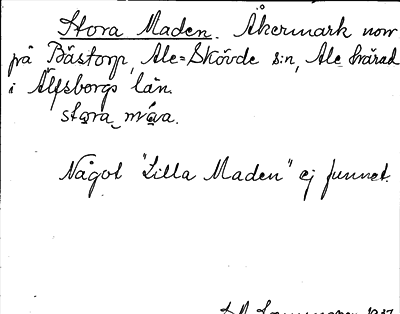 Stora Maden. Åkermark norr
på Båstorp, Ale-Skövde s:n, Ale härad
i Älfsborgs län.
stora måa.
Något "Lilla Maden" ej funnet.